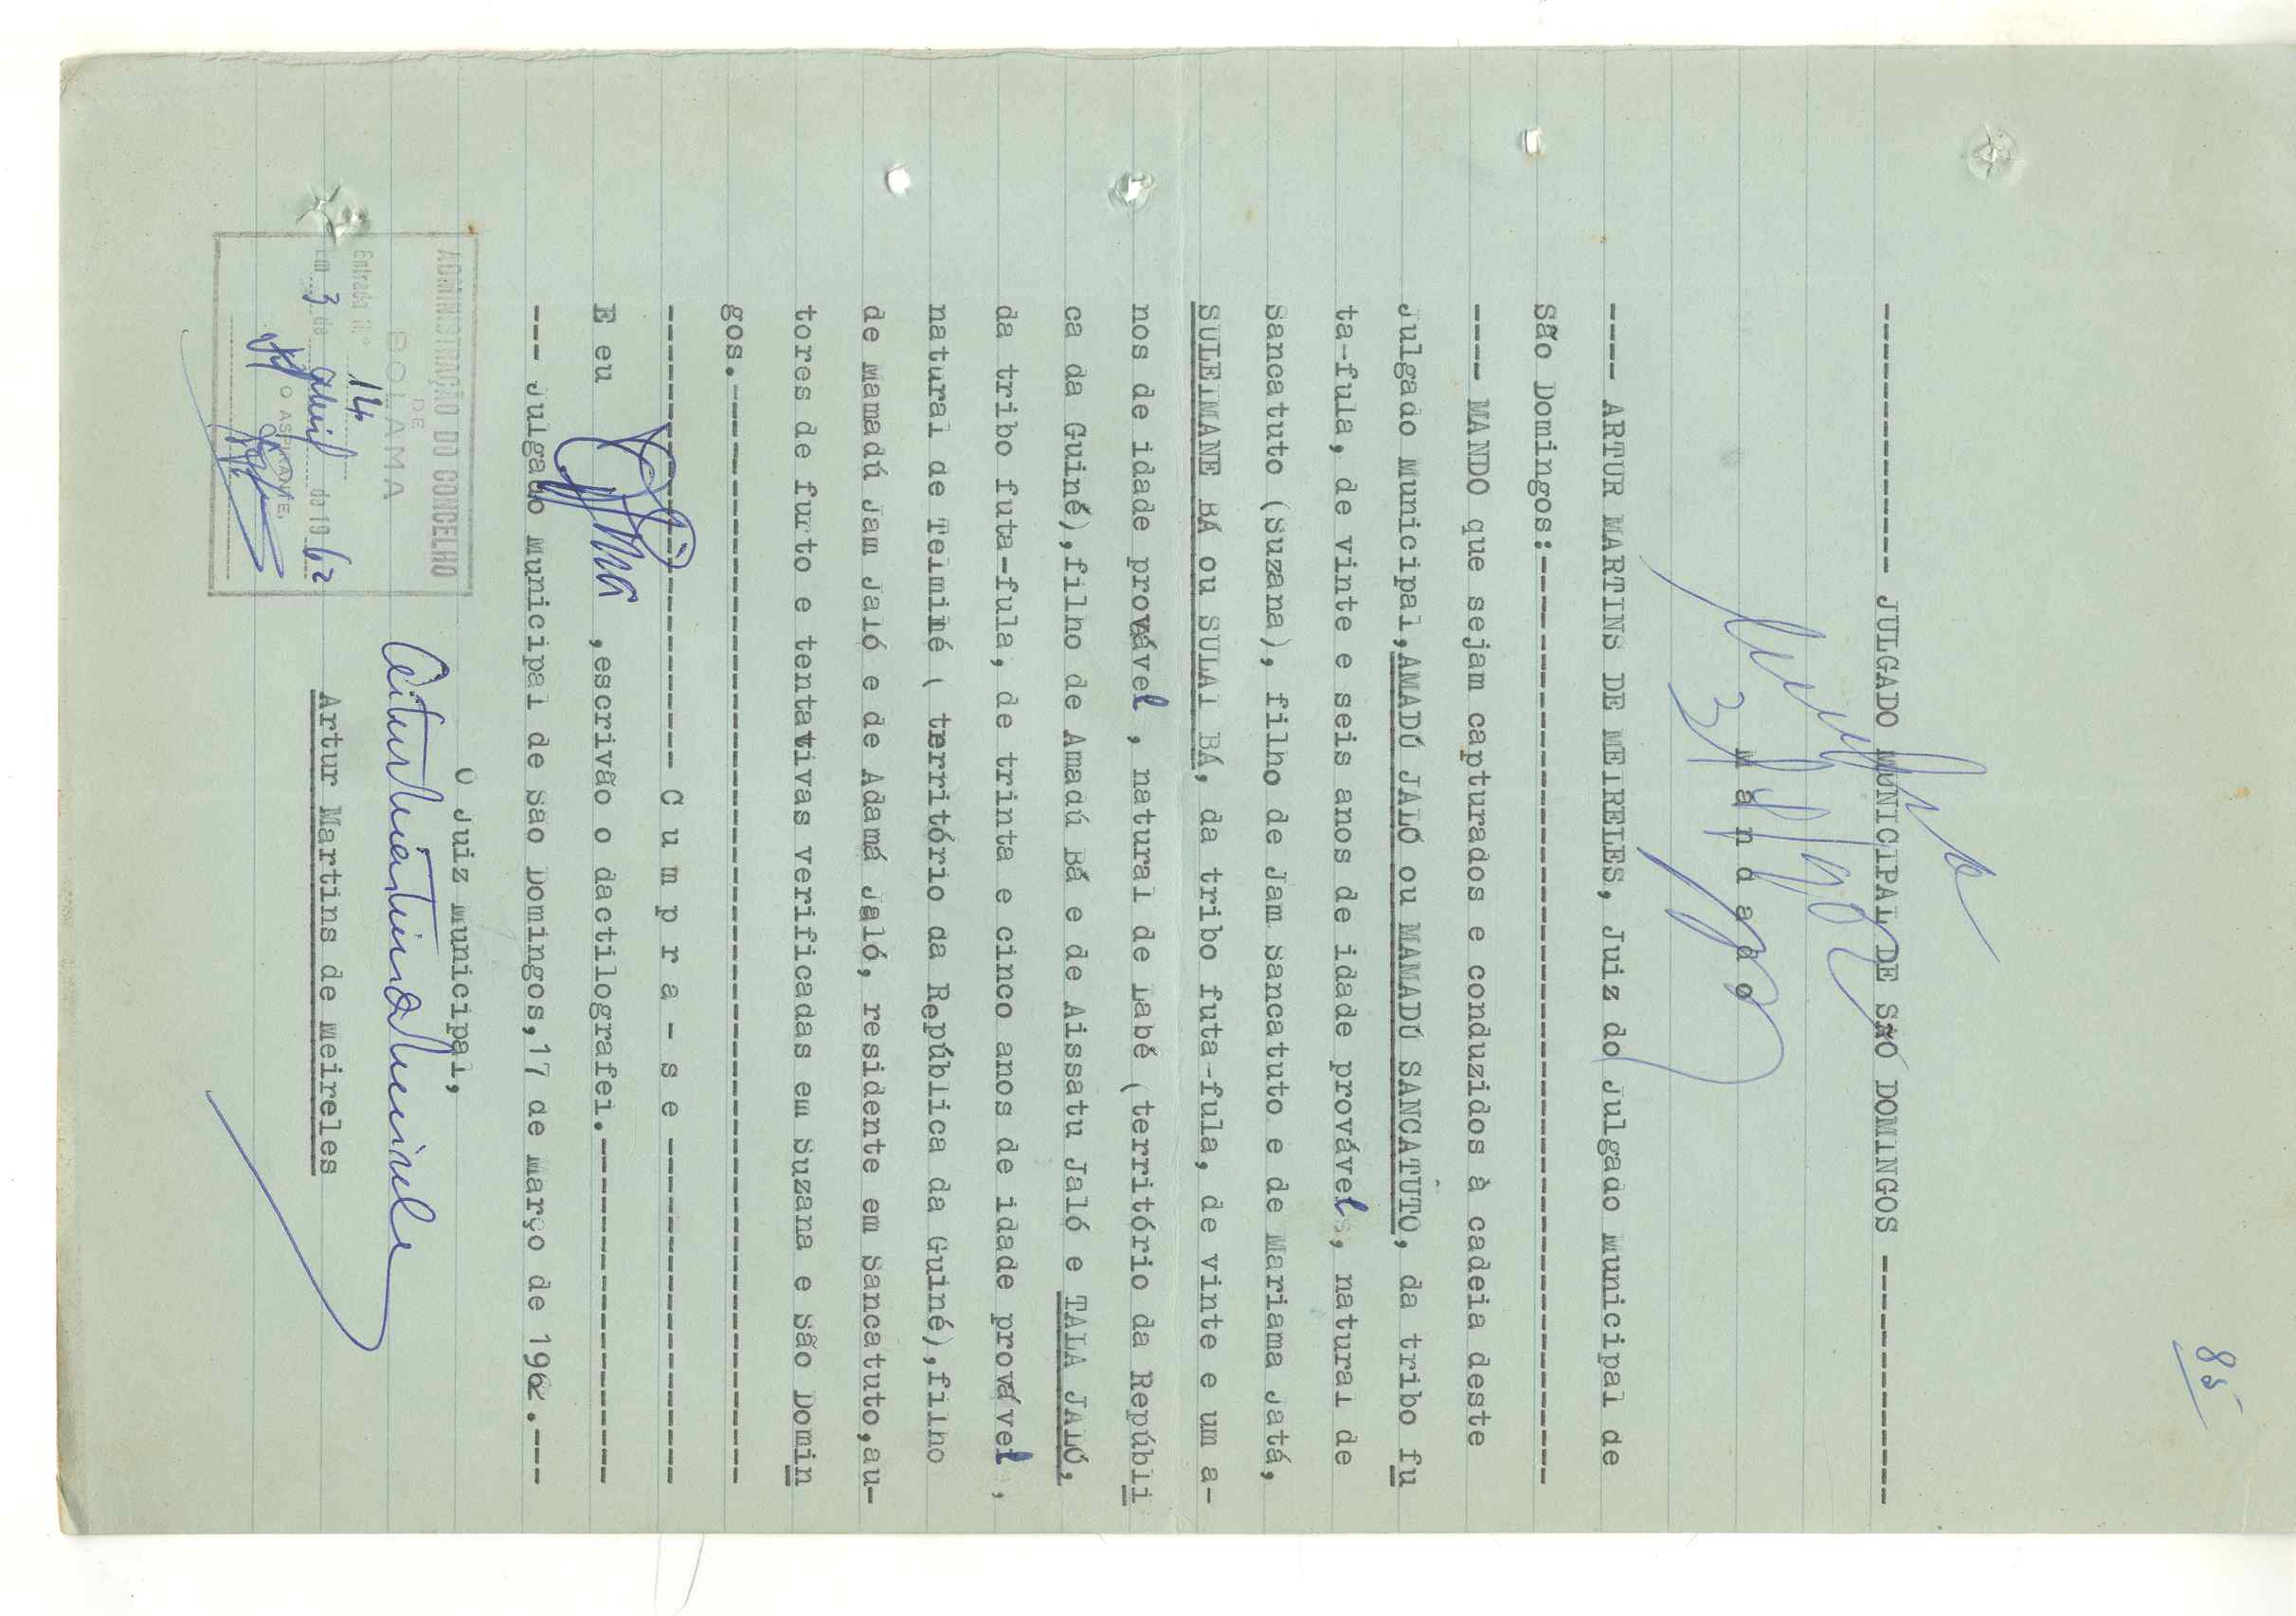 85
------------ JULGADO MUNICIPAL DE SÃO DOMINGOS ------------
M a n d a d o
---- ARTUR MARTINS DE MEIRELES, Juiz do Julgado Municipal de
São Domingos:----------------------------------------
---- MANDO que sejam capturados e conduzidos à cadeia deste
Julgado Municipal, AMADÚ JALÓ ou MAMADÚ SANCATUTO, da tribo fu
ta-fula, de vinte e seis anos de idade provável, natural de
Sancatuto (Suzana), filho de Jam Sancatuto e de Mariama Jatá,
SULEIMANE BÁ ou SULAI BÁ, da tribo futa-fula, de vinte e um a-
nos de idade provável , natural de Labé (território da Repúbli
ca da Guiné),filho de Amadú Bá e de Aissatu Jaló e TALA JALÓ,
da tribo futa-fula, de trinta e cinco anos de idade provável ,
natural de Teiminé ( território da República da Guiné),filho
de Mamadú Jam Jaló e de Adamá Jaló, residente em Sancatuto,au-
tores de furto e tentativas verificadas em Suzana e São Domin
gos.--------------------------------------------------
------------------- C u m p r a - s e -----------------
E eu , escrivão o dactilografei.-----------------
--- Julgado Municipal de São Domingos,17 de Março de 1962.---
O Juiz Municipal,
Artur Martins de Meireles
Artur Martins de Meireles
ADMINISTRAÇÃO DO CONCELHO
DE
BOLAMA
Entrada N.º 14
Em 3 de abril de 1962
O ASPIRANTE,